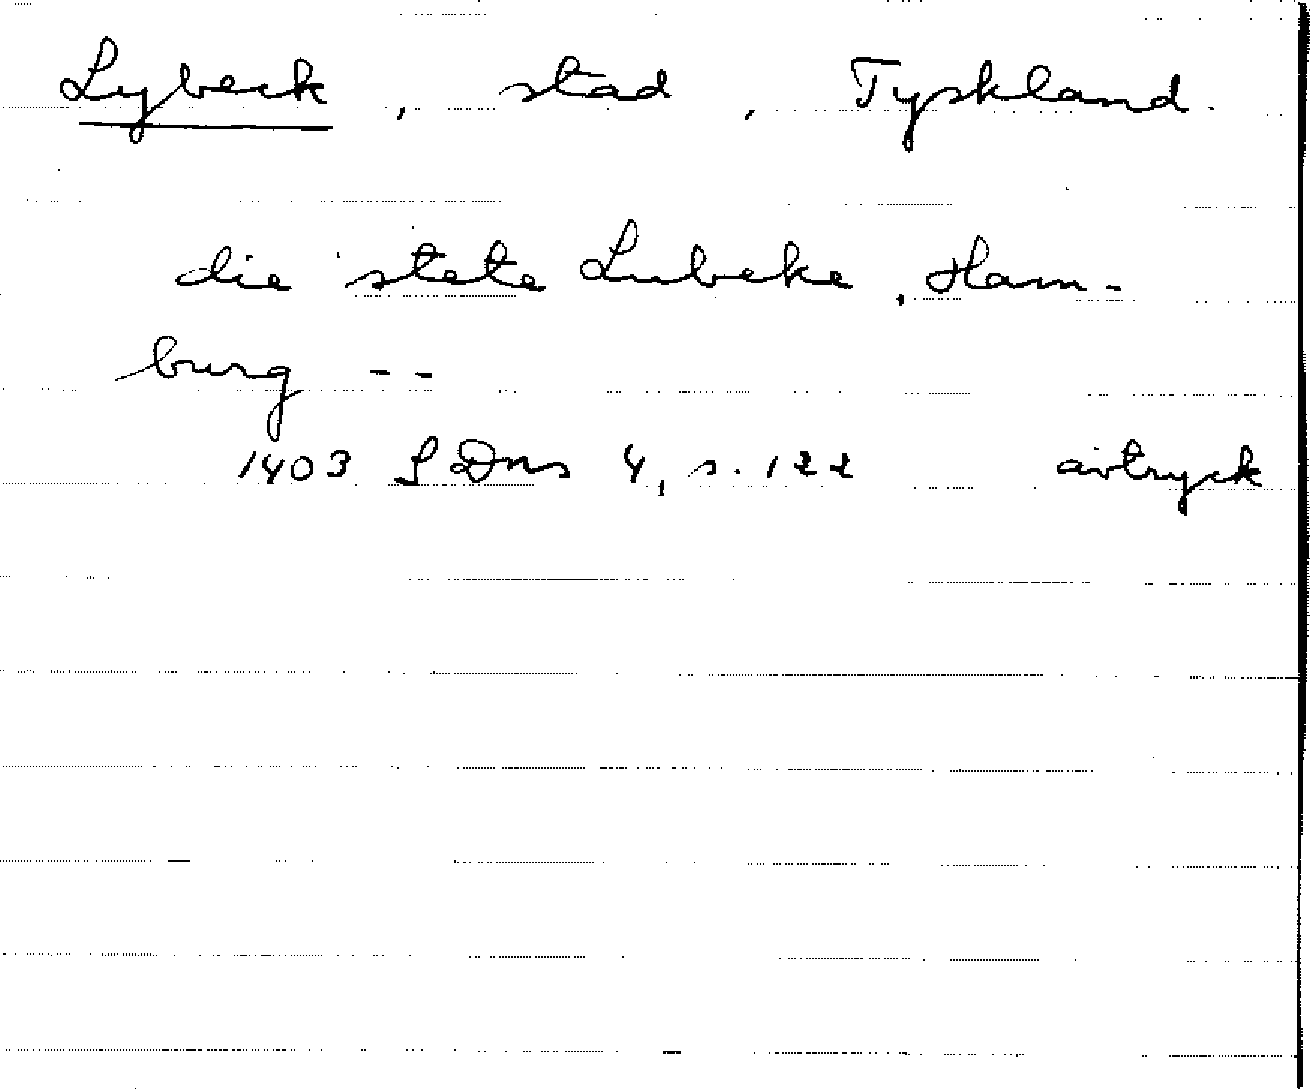 Lybeck, stad, Tyskland.
die stete Lubeke, Ham-
burg --
1403 SDns 4, s. 122 avtryck